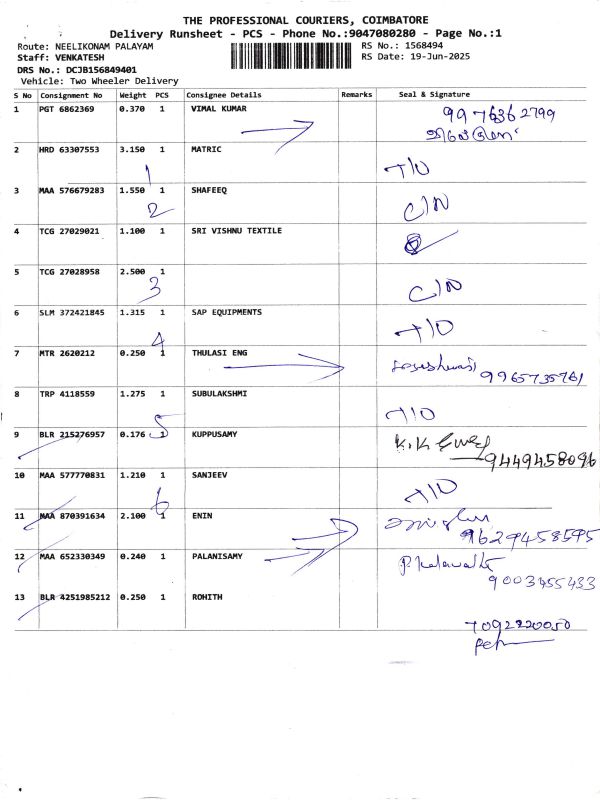 THE PROFESSIONAL COURIERS, COIMBATORE
Delivery Runsheet - PCS - Phone No.:9047080280 - Page No.:1
Route: NEELIKONAM PALAYAM
RS No.: 1568494
Staff: VENKATESH
RS Date: 19-Jun-2025
DRS No.: DCJB156849401
Vehicle: Two Wheeler Delivery
S No Consignment No Weight PCS Consignee Details Remarks Seal & Signature
1 PGT 6862369 0.370 1 VIMAL KUMAR 9976362799
2 HRD 63307553 3.150 1 MATRIC T/O
1
3 MAA 576679283 1.550 1 SHAFEEQ C/N
2
4 TCG 27029021 1.100 1 SRI VISHNU TEXTILE
5 TCG 27028958 2.500 1 C/N
3
6 SLM 372421845 1.315 1 SAP EQUIPMENTS T/O
4
7 MTR 2620212 0.250 1 THULASI ENG
9965735761
8 TRP 4118559 1.275 1 SUBULAKSHMI T/O
5
9 BLR 215276957 0.176 1 KUPPUSAMY K.K
9449458096
10 MAA 577770831 1.210 1 SANJEEV T/O
6
11 MAA 870391634 2.100 1 ENIN
9629458595
12 MAA 652330349 0.240 1 PALANISAMY
9003455433
13 BLR 4251985212 0.250 1 ROHITH
7092220050